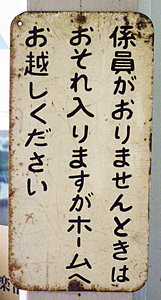 係員がおりませんときは
おそれ入りますがホームへ
お越しください